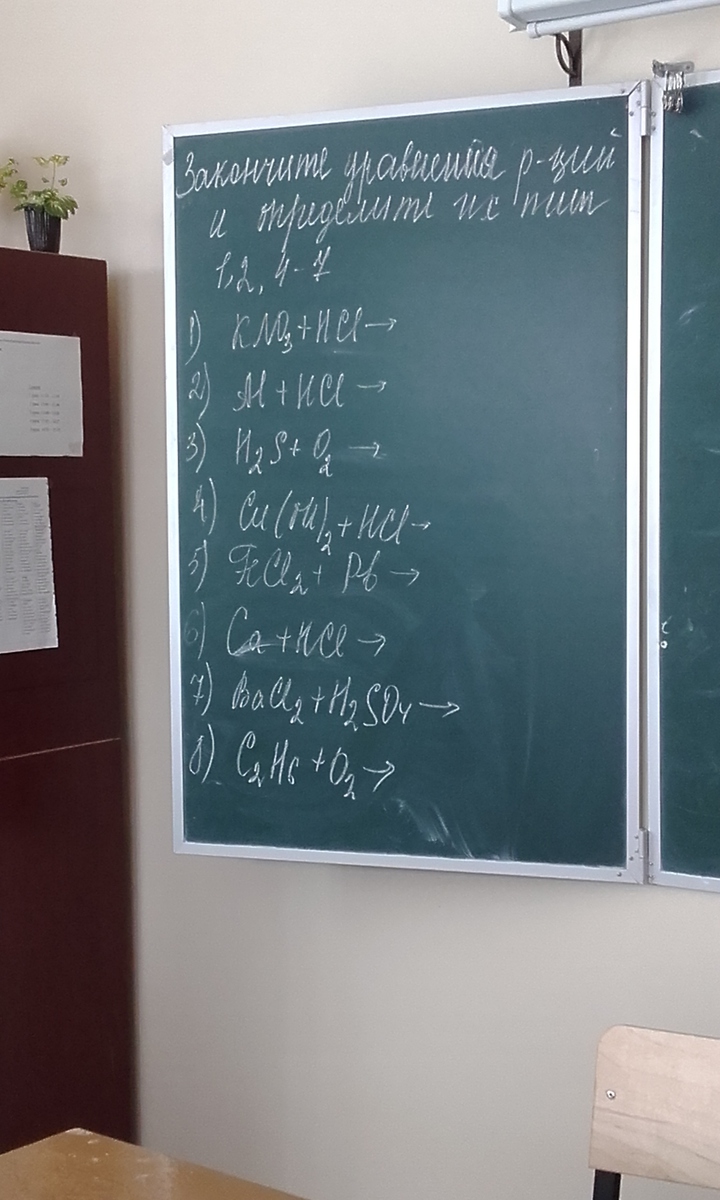 Закончите уравнения р-ций
и определите их тип
1,2, 4-7
1) KNO3+HCl→
2) Al+HCl→
3) H2S+O2→
4) Cu(OH)2+HCl→
5) FeCl2+Pb→
6) Ca+HCl→
7) BaCl2+H2SO4→
8) C2H6+O2→